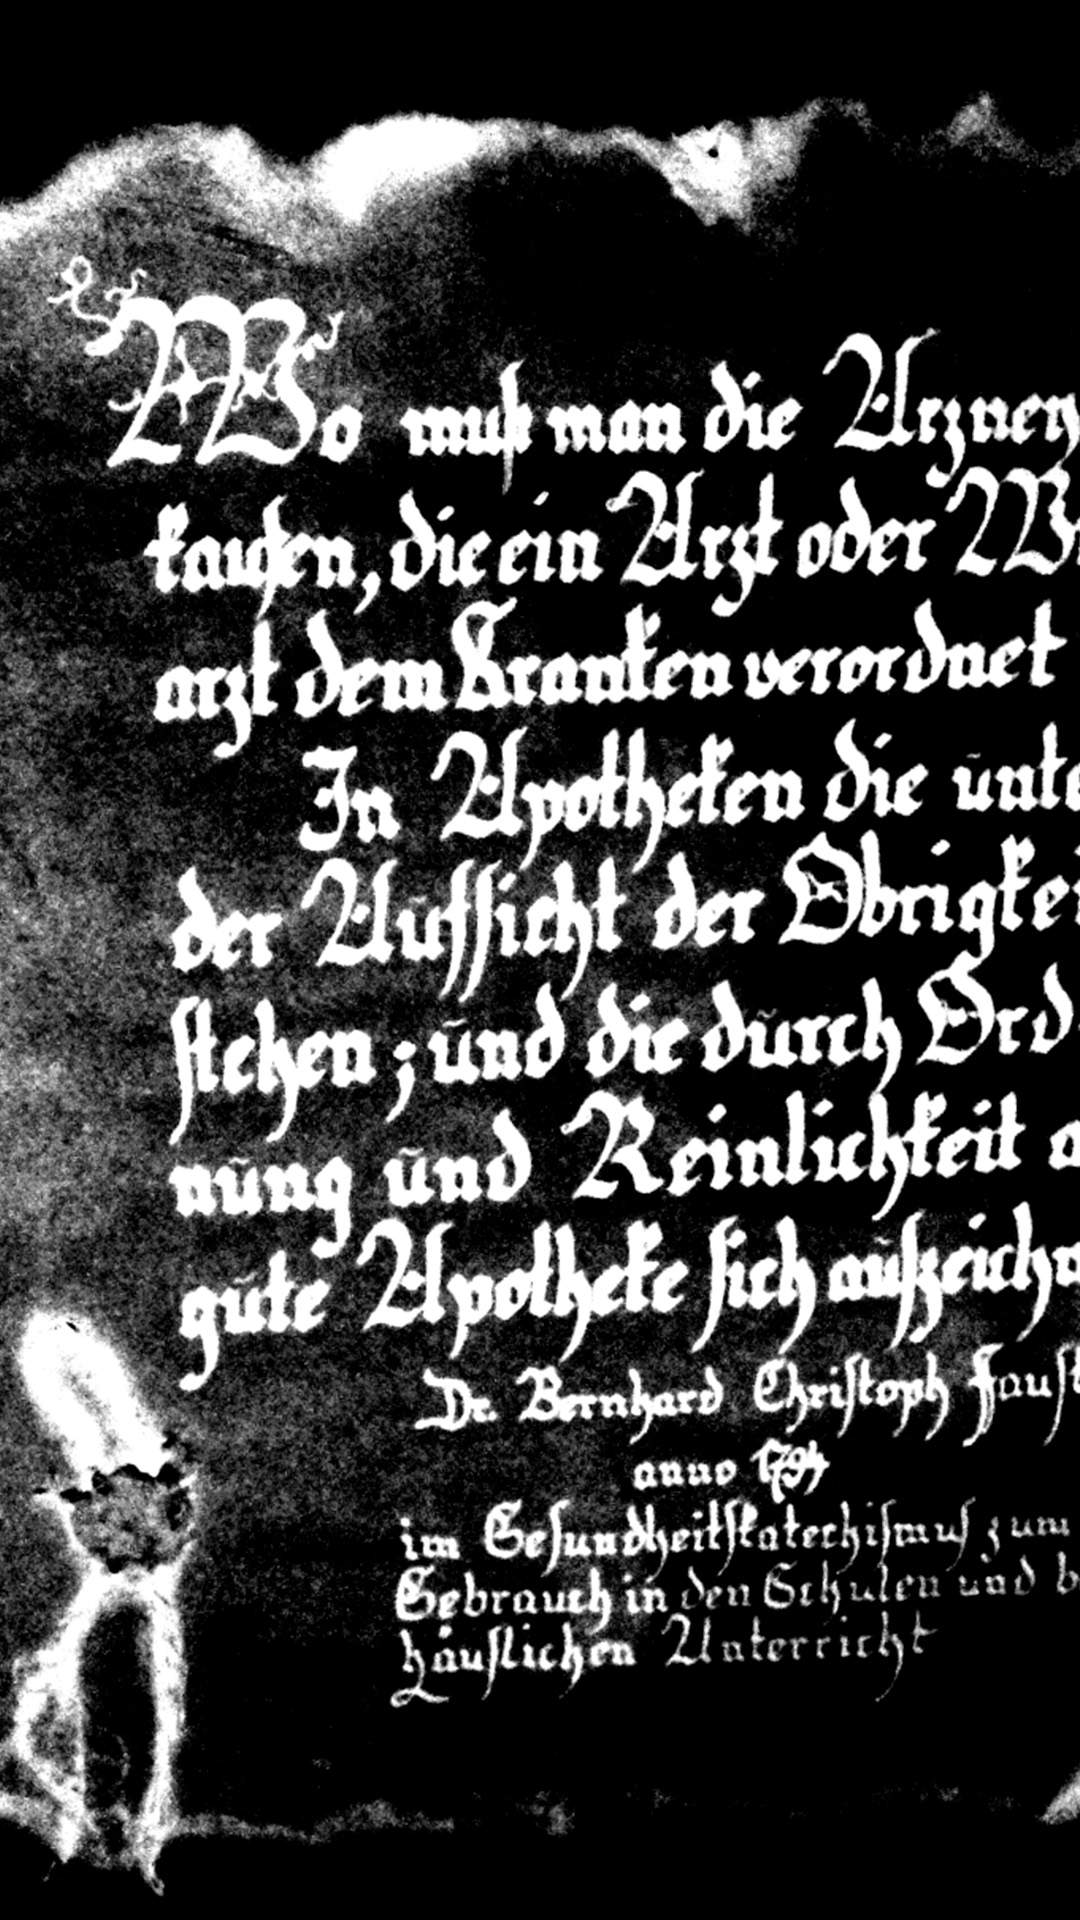 Wo muß man die Arzney
kaufen, die ein Arzt oder W
arzt dem Kranken verordnet
In Apotheken die unte
der Aufsicht der Obrigkei
stehen; und die durch Ord
nung und Reinlichkeit a
gute Apotheke sich auszeichn
Dr. Bernhard Christoph Faust
anno 1794
im Gesundheitskatechismus zum
Gebrauch in den Schulen und b
häuslichen Unterricht